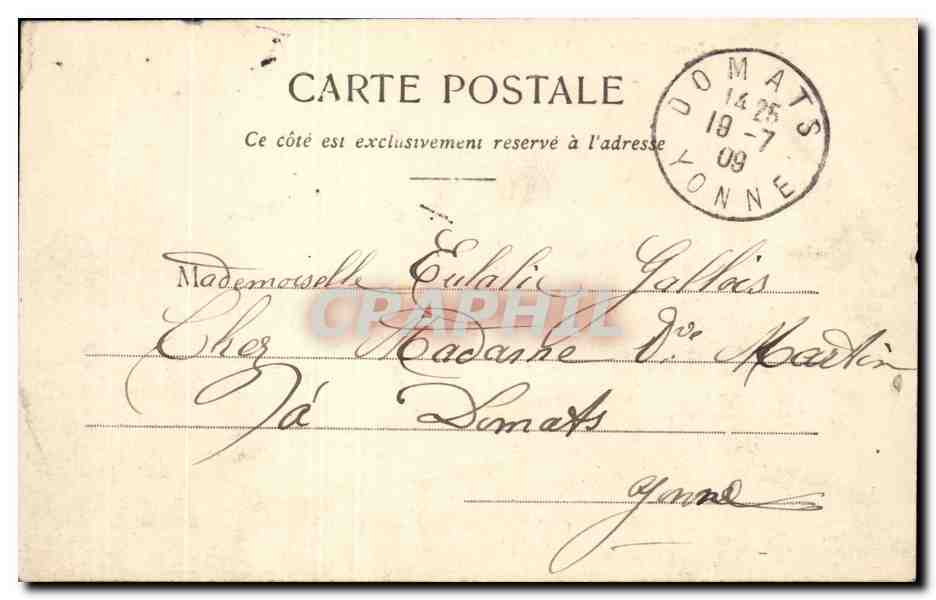 CARTE POSTALE
Ce côté est exclusivement reservé à l'adresse
DOMATS
14 25
19 - 7
09
YONNE
Mademoiselle Eulalie Gallois
CPAPHIL
Chez Madame Vve Martin
à Domats
Yonne